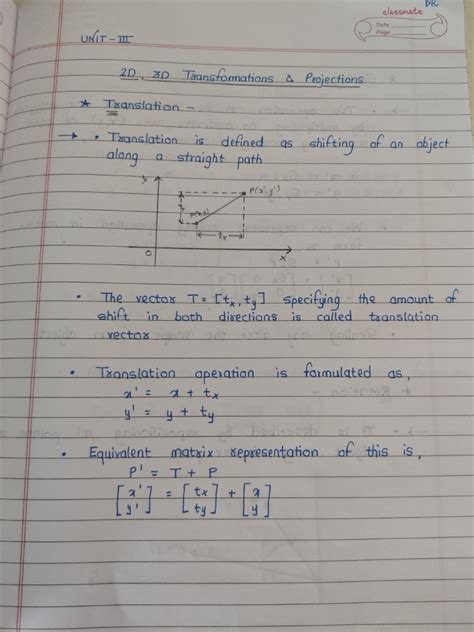 BK
classmate
Date
Page
UNIT - III
2D, 3D Transformations & Projections
★ Translation -
→ • Translation is defined as shifting of an object
along a straight path
y
P(x', y')
ty
P(x,y)
tx
O
x
• The vector T = [tx, ty] specifying the amount of
shift in both directions is called translation
vector
• Translation operation is formulated as,
x' = x + tx
y' = y + ty
• Equivalent matrix representation of this is,
P' = T + P
[x' y'] = [tx ty] + [x y]